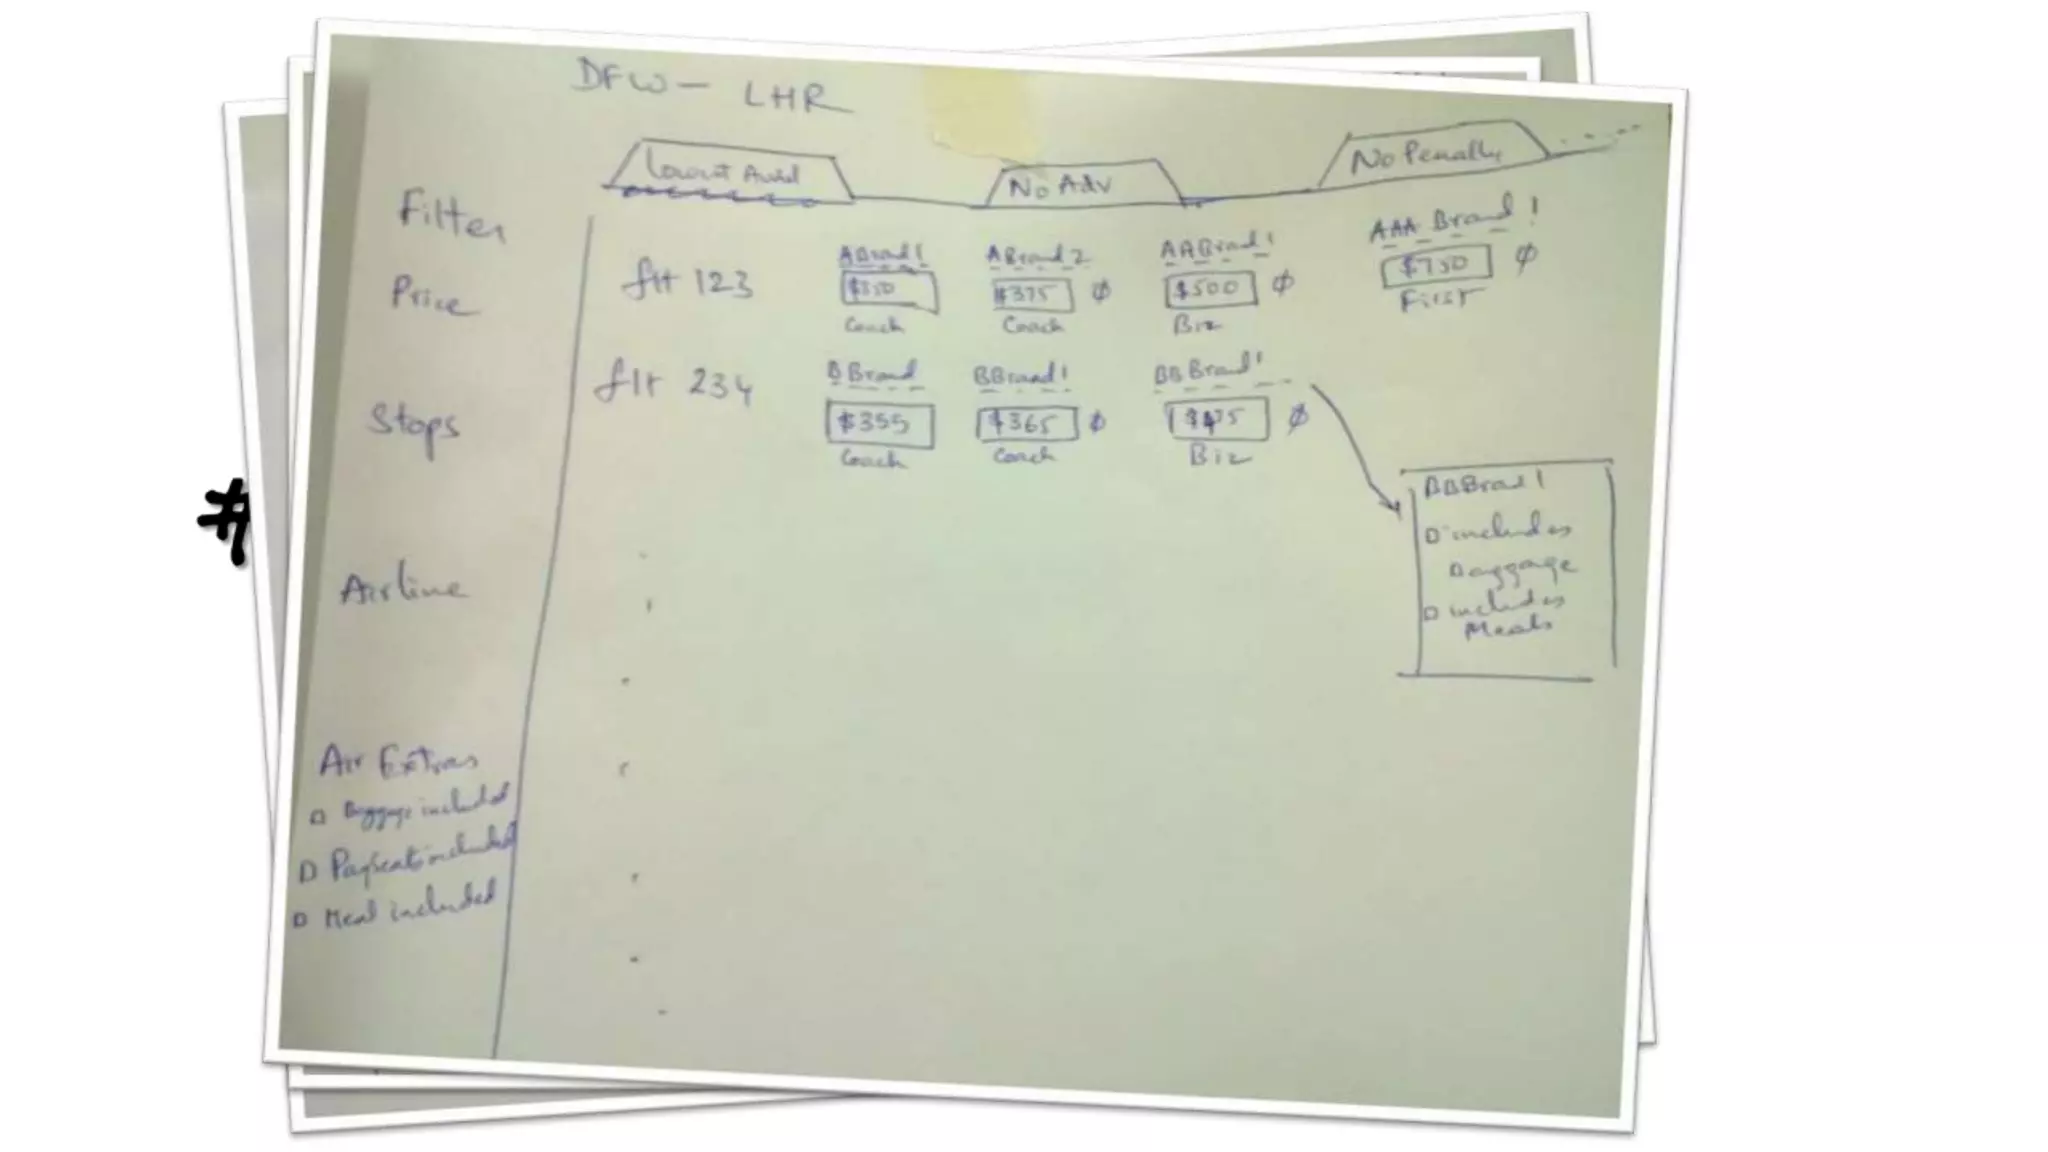 DFW - LHR
Lowest Avail
No Adv
No Penalty
Filter
Price
Stops
Airline
Air Extras
□ Baggage included
□ Payseats included
□ Meal included
flt 123
ABrand1
$350
Coach
ABrand 2
$375 φ
Coach
AABrand 1
$500 φ
Biz
AAA Brand 1
$750 φ
First
flt 234
BBrand
$355
Coach
BBrand 1
$365 φ
Coach
BBBrand 1
$475 φ
Biz
BBBrand 1
□ includes
Baggage
□ includes
Meals
#